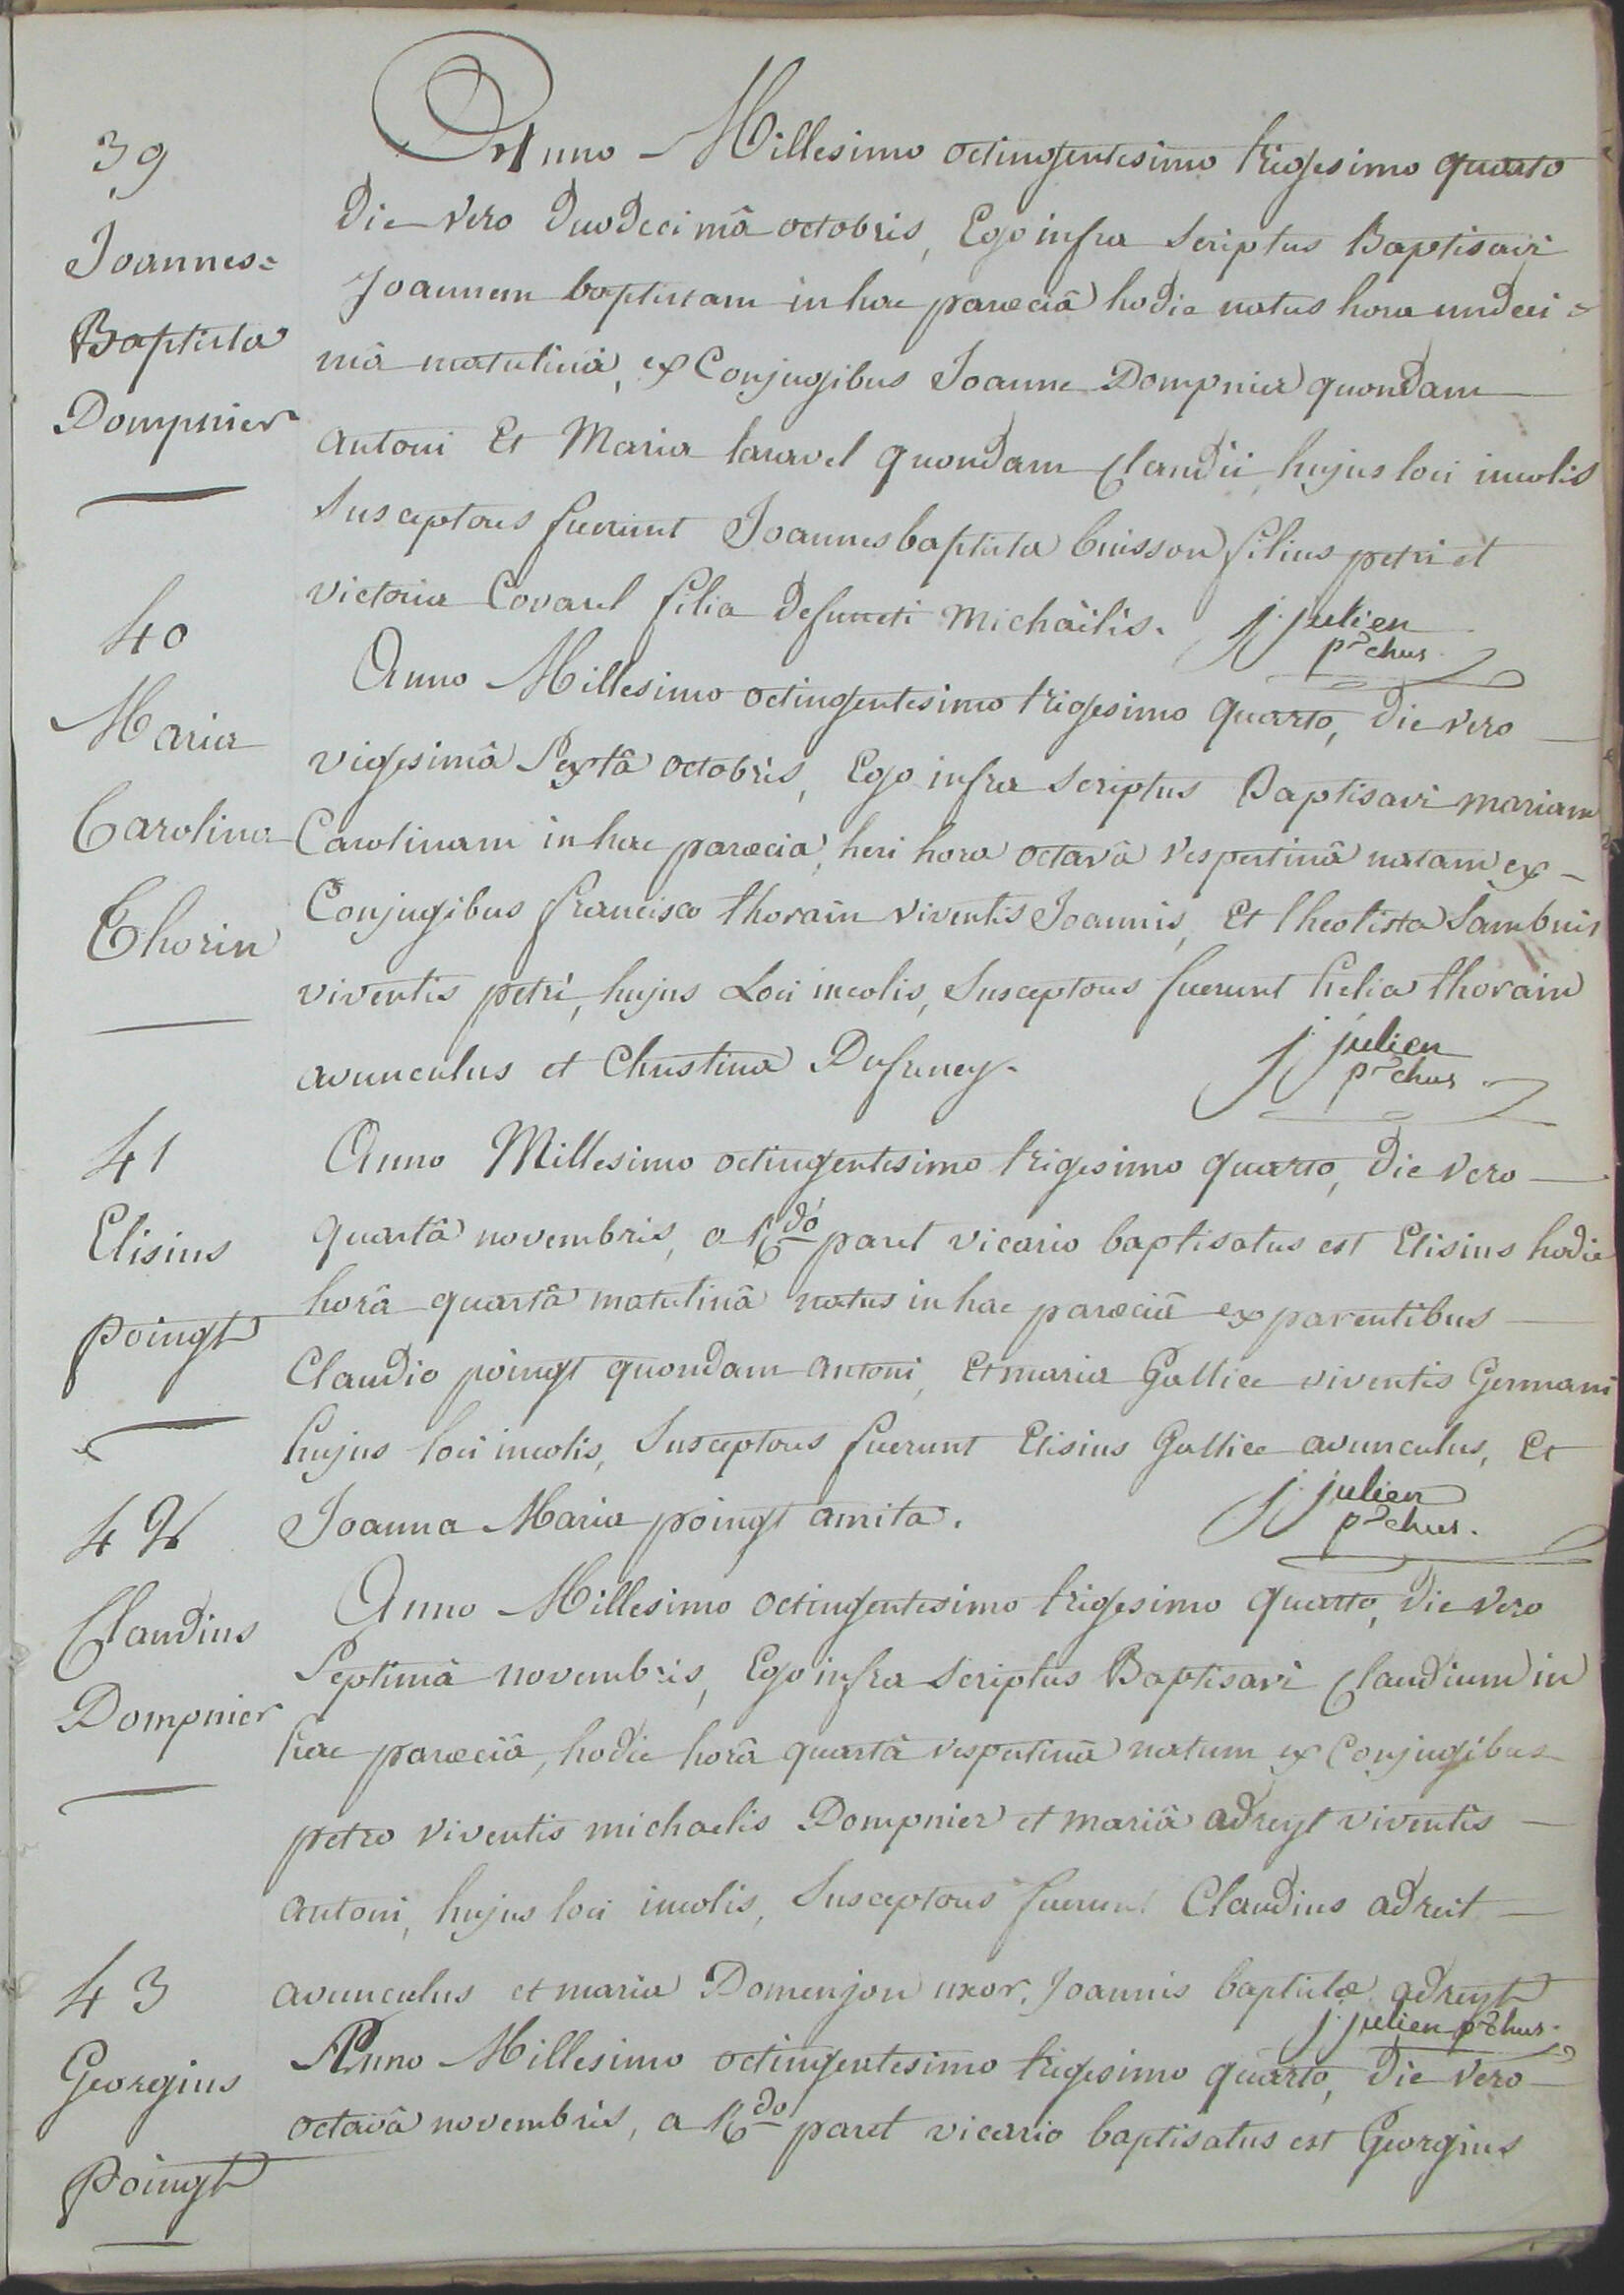 39
Joannes=
Baptista
Dompnier
Anno Millesimo octingentesimo trigesimo quarto
Die vero Duodecimâ octobris, Ego infra scriptus Baptisavi
Joannem baptistam in hac parœciâ hodie natus hora undeci=
mâ matutinâ, ex Conjugibus Joanne Dompnier quondam
antoni Et Maria taravel quondam Claudii, hujus loci incolis
Susceptores fuerunt Joannes baptista buisson filius petri et
victoria Covarel filia defuncti Michaïlis. j julien
p.r chus
40
Maria
Carolina
Thorin
Anno Millesimo octingentesimo trigesimo quarto, die vero
vigesimâ Sextâ octobris, Ego infra scriptus Baptisavi mariam
Carolinam in hac parœcia, heri hora octavâ vespertinâ natam ex
Conjugibus francisco thorain viventis Joannis, Et theotista Sambuis
viventis petri, hujus Loci incolis, Susceptores fuerunt helia thorain
avunculus et Christina Dufreney. j julien
p.r chus
41
Elisius
poingt
Anno Millesimo octingentesimo trigesimo quarto, die vero
quartâ novembris, a R.do paret vicario baptisatus est Elisius hodie
horâ quartâ matutinâ natus in hac parœciâ ex parentibus
Claudio poingt quondam antoni, Et maria Gallice viventis Germani
hujus loci incolis, Susceptores fuerunt Elisius Gallice avunculus, Et
Joanna Maria poingt amita. j julien
p.r chus.
42
Claudius
Dompnier
Anno Millesimo octingentesimo trigesimo quarto, die vero
Septimâ novembris, Ego infra scriptus Baptisavi Claudium in
hac parœciâ, hodie horâ quartâ vespertinâ natum ex Conjugibus
petro viventis michaelis Dompnier et mariâ adreyt viventis
antoni, hujus loci incolis, Susceptores fuerunt Claudius adreit
avunculus et maria Domenjon uxor Joannis baptistæ adreyt
j julien p.r chus.
43
Georgius
Poingt
Anno Millesimo octingentesimo trigesimo quarto, Die vero
octavâ novembris, a R.do paret vicario baptisatus est Georgius